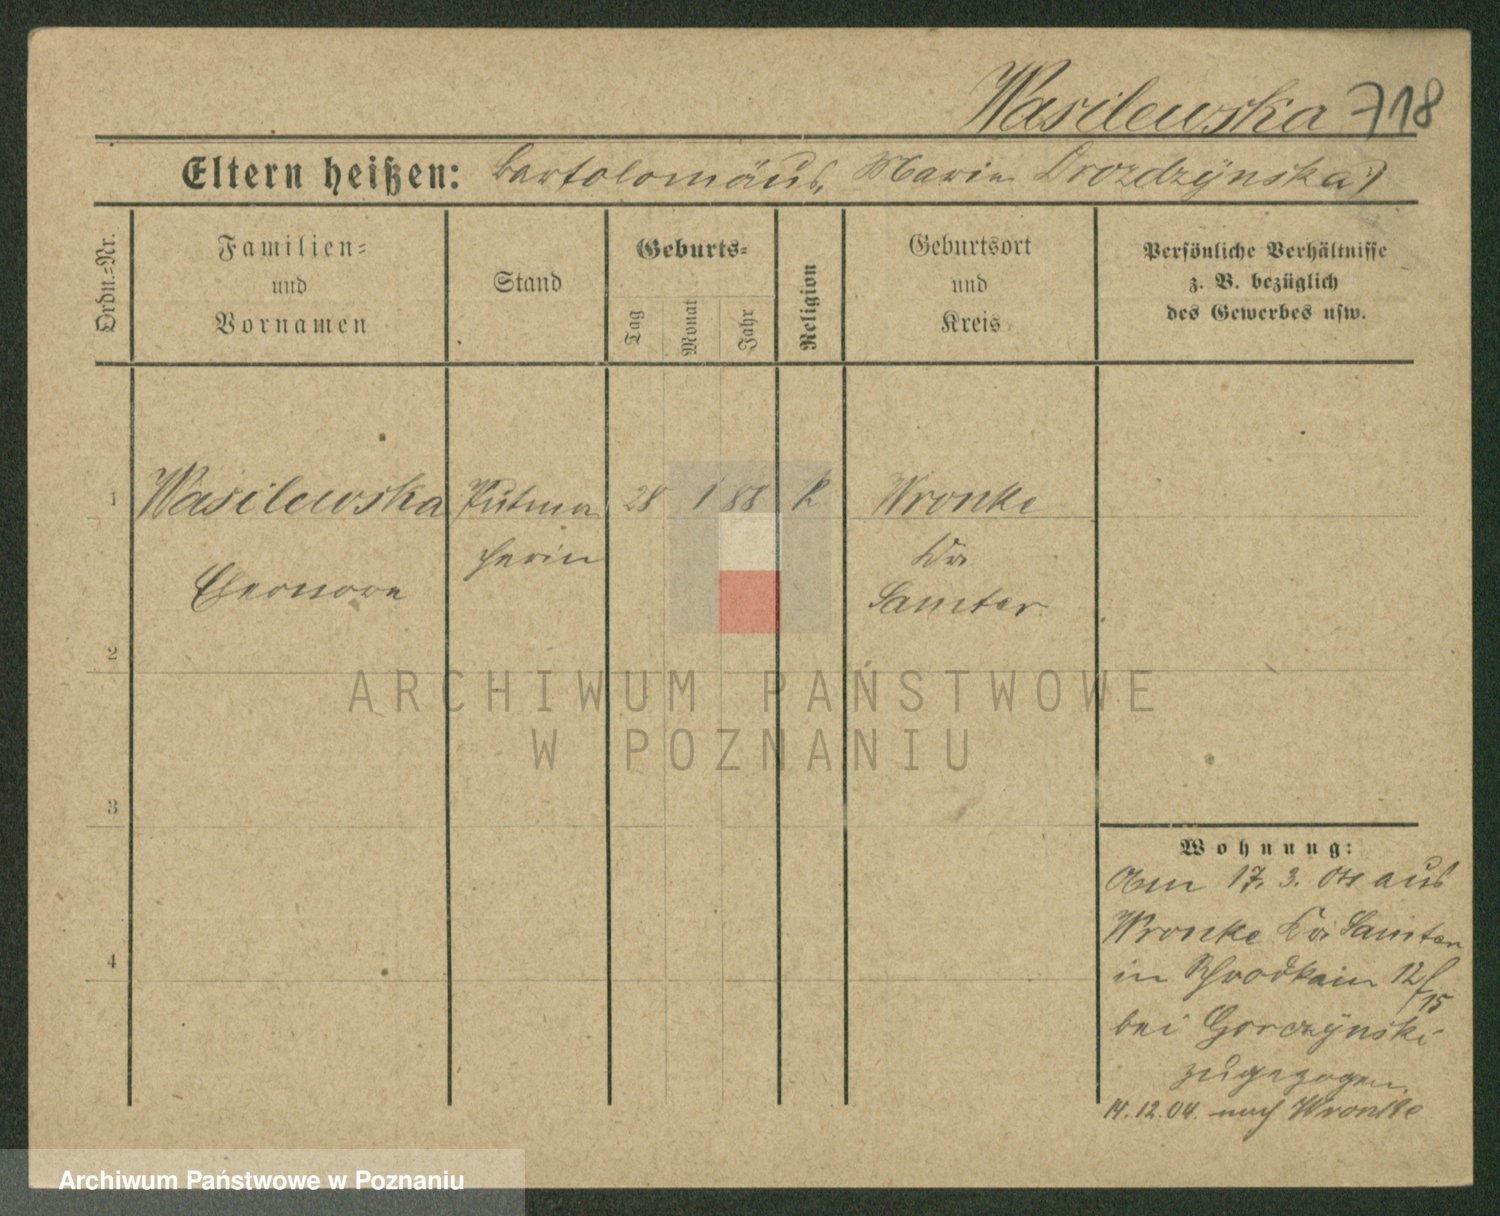 Wasilewska 718
Eltern heißen: Bartolomäus, Marie Drozdzynska
Ordn.=Nr.
Familien=
und
Vornamen
Stand
Geburts=
Tag
Monat
Jahr
Religion
Geburtsort
und
Kreis
Persönliche Verhältnisse
z. B. bezüglich
des Gewerbes usw.
1 Wasilewska Putzma 28 1 88 k Wronke
cherin Kr.
Eleonore Samter
2
3
4
Wohnung:
Am 17. 3. 04 aus
Wronke Kr. Samter
in 12/15
bei Gorczynski
zugezogen.
14.12.04. nach Wronke
ARCHIWUM PAŃSTWOWE
W POZNANIU
Archiwum Państwowe w Poznaniu